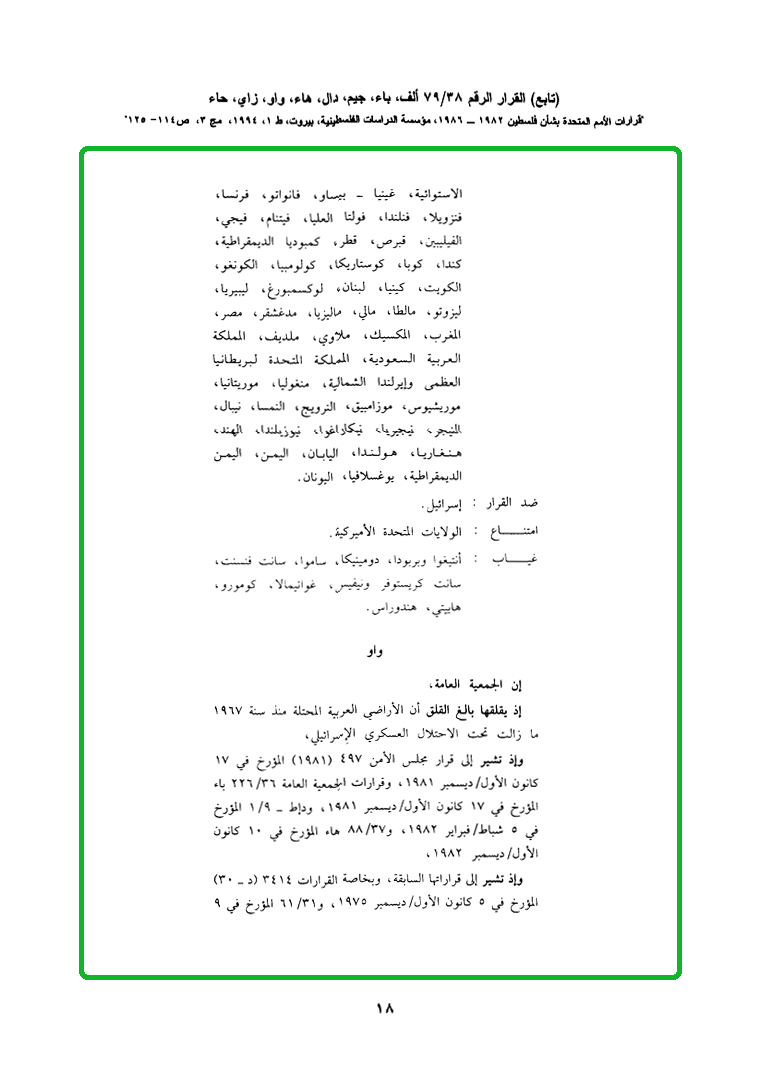 (تابع) القرار الرقم ٧٩/٣٨ ألف، باء، جيم، دال، هاء، واو، زاي، حاء
"قرارات الأمم المتحدة بشأن فلسطين ١٩٨٢ – ١٩٨٦، مؤسسة الدراسات الفلسطينية، بيروت، ط ١، ١٩٩٤، مج ٣، ص١١٤– ١٢٥"
الاستوائية، غينيا – بيساو، فانواتو، فرنسا،
فنزويلا، فنلندا، فولتا العليا، فيتنام، فيجي،
الفيليبين، قبرص، قطر، كمبوديا الديمقراطية،
كندا، كوبا، كوستاريكا، كولومبيا، الكونغو،
الكويت، كينيا، لبنان، لوكسمبورغ، ليبيريا،
ليزوتو، مالطا، مالي، ماليزيا، مدغشقر، مصر،
المغرب، المكسيك، ملاوي، ملديف، المملكة
العربية السعودية، المملكة المتحدة لبريطانيا
العظمى وإيرلندا الشمالية، منغوليا، موريتانيا،
موريشيوس، موزامبيق، النرويج، النمسا، نيبال،
النيجر، نيجيريا، نيكاراغوا، نيوزيلندا، الهند،
هنغاريا، هولندا، اليابان، اليمن، اليمن
الديمقراطية، يوغسلافيا، اليونان.
ضد القرار : إسرائيل.
امتنـــــاع : الولايات المتحدة الأميركية.
غيـــــاب : أنتيغوا وبربودا، دومينيكا، ساموا، سانت فنسنت،
سانت كريستوفر ونيفيس، غواتيمالا، كومورو،
هاييتي، هندوراس.
واو
إن الجمعية العامة،
إذ يقلقها بالغ القلق أن الأراضي العربية المحتلة منذ سنة ١٩٦٧
ما زالت تحت الاحتلال العسكري الإسرائيلي،
وإذ تشير إلى قرار مجلس الأمن ٤٩٧ (١٩٨١) المؤرخ في ١٧
كانون الأول/ديسمبر ١٩٨١، وقرارات الجمعية العامة ٢٢٦/٣٦ باء
المؤرخ في ١٧ كانون الأول/ديسمبر ١٩٨١، ودإط – ١/٩ المؤرخ
في ٥ شباط/فبراير ١٩٨٢، و٨٨/٣٧ هاء المؤرخ في ١٠ كانون
الأول/ديسمبر ١٩٨٢،
وإذ تشير إلى قراراتها السابقة، وبخاصة القرارات ٣٤١٤ (د – ٣٠)
المؤرخ في ٥ كانون الأول/ديسمبر ١٩٧٥، و٦١/٣١ المؤرخ في ٩
١٨